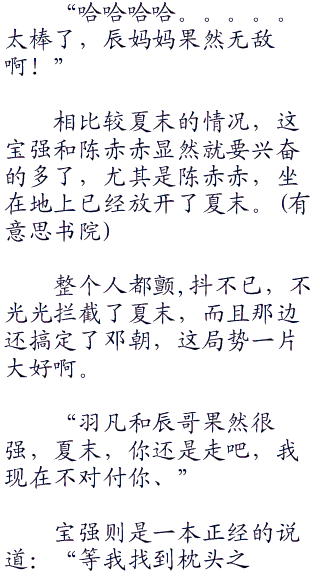 “哈哈哈哈。。。。。
太棒了，辰妈妈果然无敌
啊！”
相比较夏末的情况，这
宝强和陈赤赤显然就要兴奋
的多了，尤其是陈赤赤，坐
在地上已经放开了夏末。(有
意思书院)
整个人都颤,抖不已，不
光光拦截了夏末，而且那边
还搞定了邓朝，这局势一片
大好啊。
“羽凡和辰哥果然很
强，夏末，你还是走吧，我
现在不对付你、”
宝强则是一本正经的说
道：“等我找到枕头之